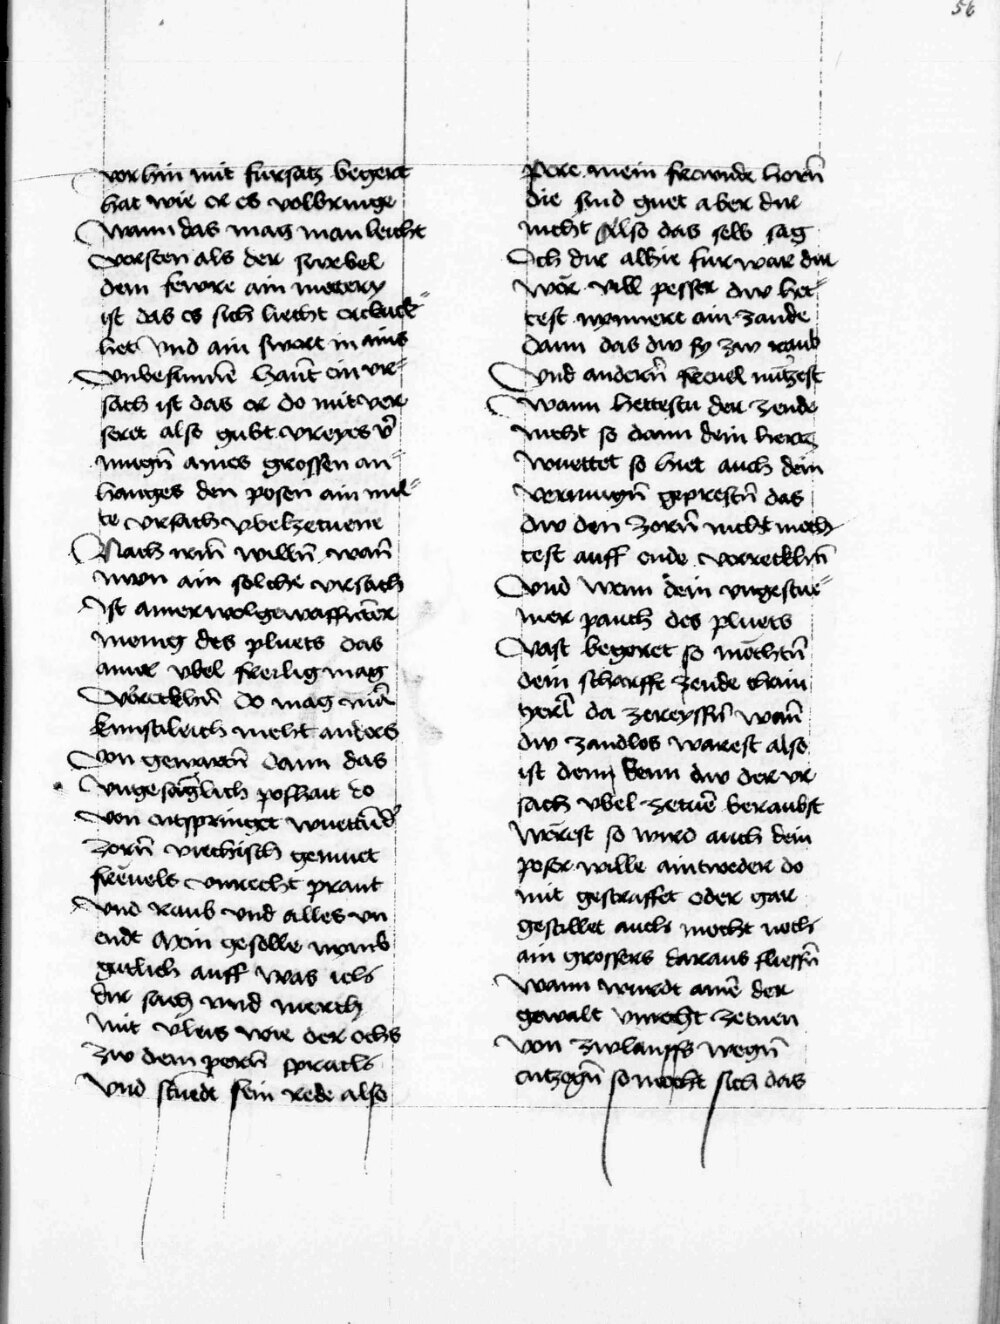 56
vor hin mit fürsatz begert
hat wie er es volbringe
Wann das mag man leicht
versten als der swebel
dem fewre ain matery
ist das es sich liecht erkuck¬
het Vnd ain swert in ains
Vnbesunnē hant ein vr¬
sach ist das er do mit ver
seret also gibt vreyes v̄
mugn̄ aines grossen an¬
hanges den posen ain mil¬
te vrsach vbelzetuene
Nach irm̄ willn̄ wan̄
nwn ain solche vrsach
Ist ainer wolgewaffnt̄er
menig des pluets das
ainer vbel freilig mag
Volreckhn̄ do mag man̄
kunstleich nicht anders
von gewartn̄ dann das
vngesäglich poshait do
von entspringet wuettūd̄
zorn̄ viechisch gemuet
freuels vnrecht prant
vnd Raub vnd alles vn
endt Mein geselle nymb
gütlich auff was ich
dir sag vnd merckh
mit vleis wie der ochs
zw dem pern̄ sprach
vnd stuend sein rede also
Pere mein frewnde horn̄
die sind guet aber dir
nicht Also das selb sag
Ich dir alhie fürwar dir
wër vill pesser dw het¬
test nynnert ain zande
dann das dw sy zw raub
Vnd andern̄ freuel nützest
Wann hettestu der zende
nicht so dann dein hertz
wuettet so hiet auch dein
vermugn̄ geprestn̄ das
dw den zorn̄ nicht moch
test auff ende vorreckhn̄
Vnd wenn dein vngestue¬
mer pauch des pluets
Vast begeret so möchtn̄
dein scharffe zende chain
tyerl da zereyssn̄ wan̄
dw zandlos warest also
ist denn wenn dw der vr
sach vbel zetuē beraubst
wërest so wird auch dein
poser wille aintweder do
mit gestraffet oder gar
gestillet auch mocht noch
ain grossers daraus fliessn̄
Wann wurdt ainē der
gewalt vnrecht zetuen
von zwlauffs wegn̄
entzogn̄ so mocht sich das